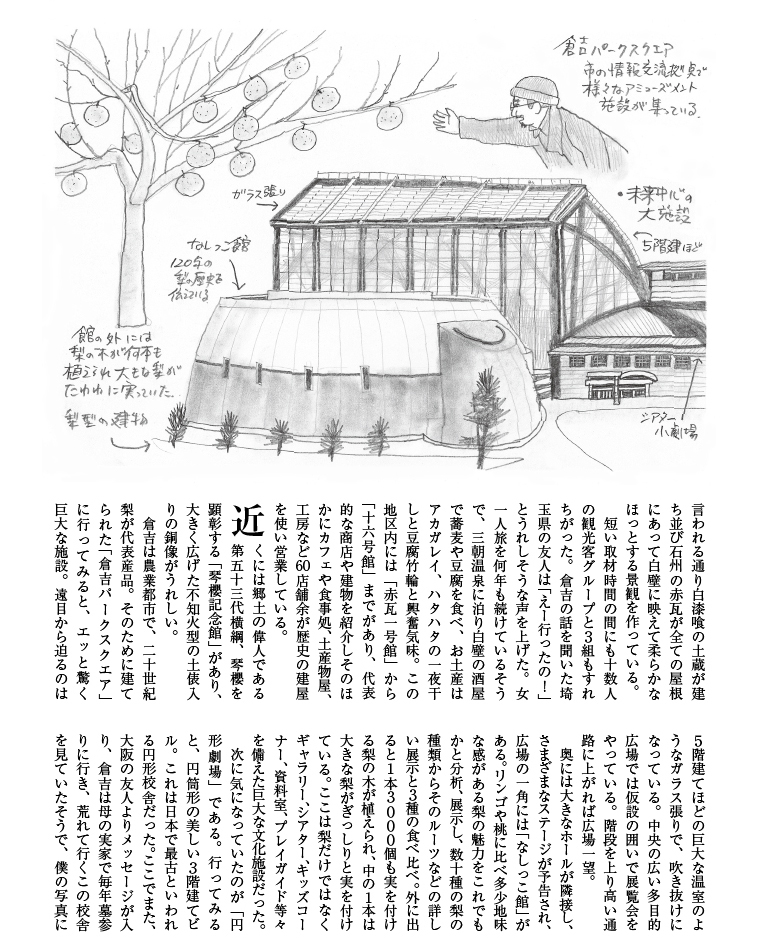 倉吉パークスクエア
市の情報交流拠点で
様々なアミューズメント
施設が集っている。
ガラス張り
・未来中心の
大施設
5階建ほど
なしっこ館
120年の
梨の歴史を
伝えている
館の外には
梨の木が何本も
植えられ大きな梨が
たわわに実っていた。
梨型の建物
シアター
小劇場
言われる通り白漆喰の土蔵が建
ち並び石州の赤瓦が全ての屋根
にあって白壁に映えて柔らかな
ほっとする景観を作っている。
短い取材時間の間にも十数人
の観光客グループと3組もすれ
ちがった。倉吉の話を聞いた埼
玉県の友人は「えー行ったの！」
とうれしそうな声を上げた。女
一人旅を何年も続けているそう
で、三朝温泉に泊り白壁の酒屋
で蕎麦や豆腐を食べ、お土産は
アカガレイ、ハタハタの一夜干
しと豆腐竹輪と興奮気味。この
地区内には「赤瓦一号館」から
「十六号館」までがあり、代表
的な商店や建物を紹介しそのほ
かにカフェや食事処、土産物屋、
工房など60店舗余が歴史の建屋
を使い営業している。
近くには郷土の偉人である
第五十三代横綱、琴櫻を
顕彰する「琴櫻記念館」があり、
大きく広げた不知火型の土俵入
りの銅像がうれしい。
倉吉は農業都市で、二十世紀
梨が代表産品。そのために建て
られた「倉吉パークスクエア」
に行ってみると、エッと驚く
巨大な施設。遠目から迫るのは
5階建てほどの巨大な温室のよ
うなガラス張りで、吹き抜けに
なっている。中央の広い多目的
広場では仮設の囲いで展覧会を
やっている。階段を上り高い通
路に上がれば広場一望。
奥には大きなホールが隣接し、
さまざまなステージが予告され、
広場の一角には「なしっこ館」が
ある。リンゴや桃に比べ多少地味
な感がある梨の魅力をこれでも
かと分析、展示し、数十種の梨の
種類からそのルーツなどの詳し
い展示と3種の食べ比べ。外に出
ると1本3000個も実を付け
る梨の木が植えられ、中の1本は
大きな梨がぎっしりと実を付け
ている。ここは梨だけではなく
ギャラリー、シアター、キッズコー
ナー、資料室、プレイガイド等々
を備えた巨大な文化施設だった。
次に気になっていたのが「円
形劇場」である。行ってみる
と、円筒形の美しい3階建てビ
ル。これは日本で最古といわれ
る円形校舎だった。ここでまた、
大阪の友人よりメッセージが入
り、倉吉は母の実家で毎年墓参
りに行き、荒れて行くこの校舎
を見ていたそうで、僕の写真に